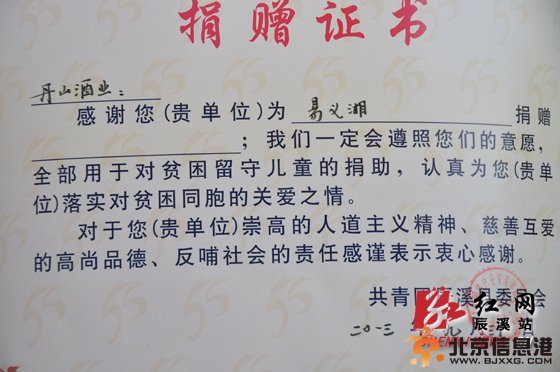 捐赠证书
丹山酒业：
感谢您(贵单位)为 易义湘 捐赠
；我们一定会遵照您们的意愿，
全部用于对贫困留守儿童的捐助，认真为您(贵单
位)落实对贫困同胞的关爱之情。
对于您(贵单位)崇高的人道主义精神、慈善互爱
的高尚品德、反哺社会的责任感谨表示衷心感谢。
共青团 溪 委员会
二〇一三年九月
红网
辰溪站
北京信息港
WWW.BJXXG.COM